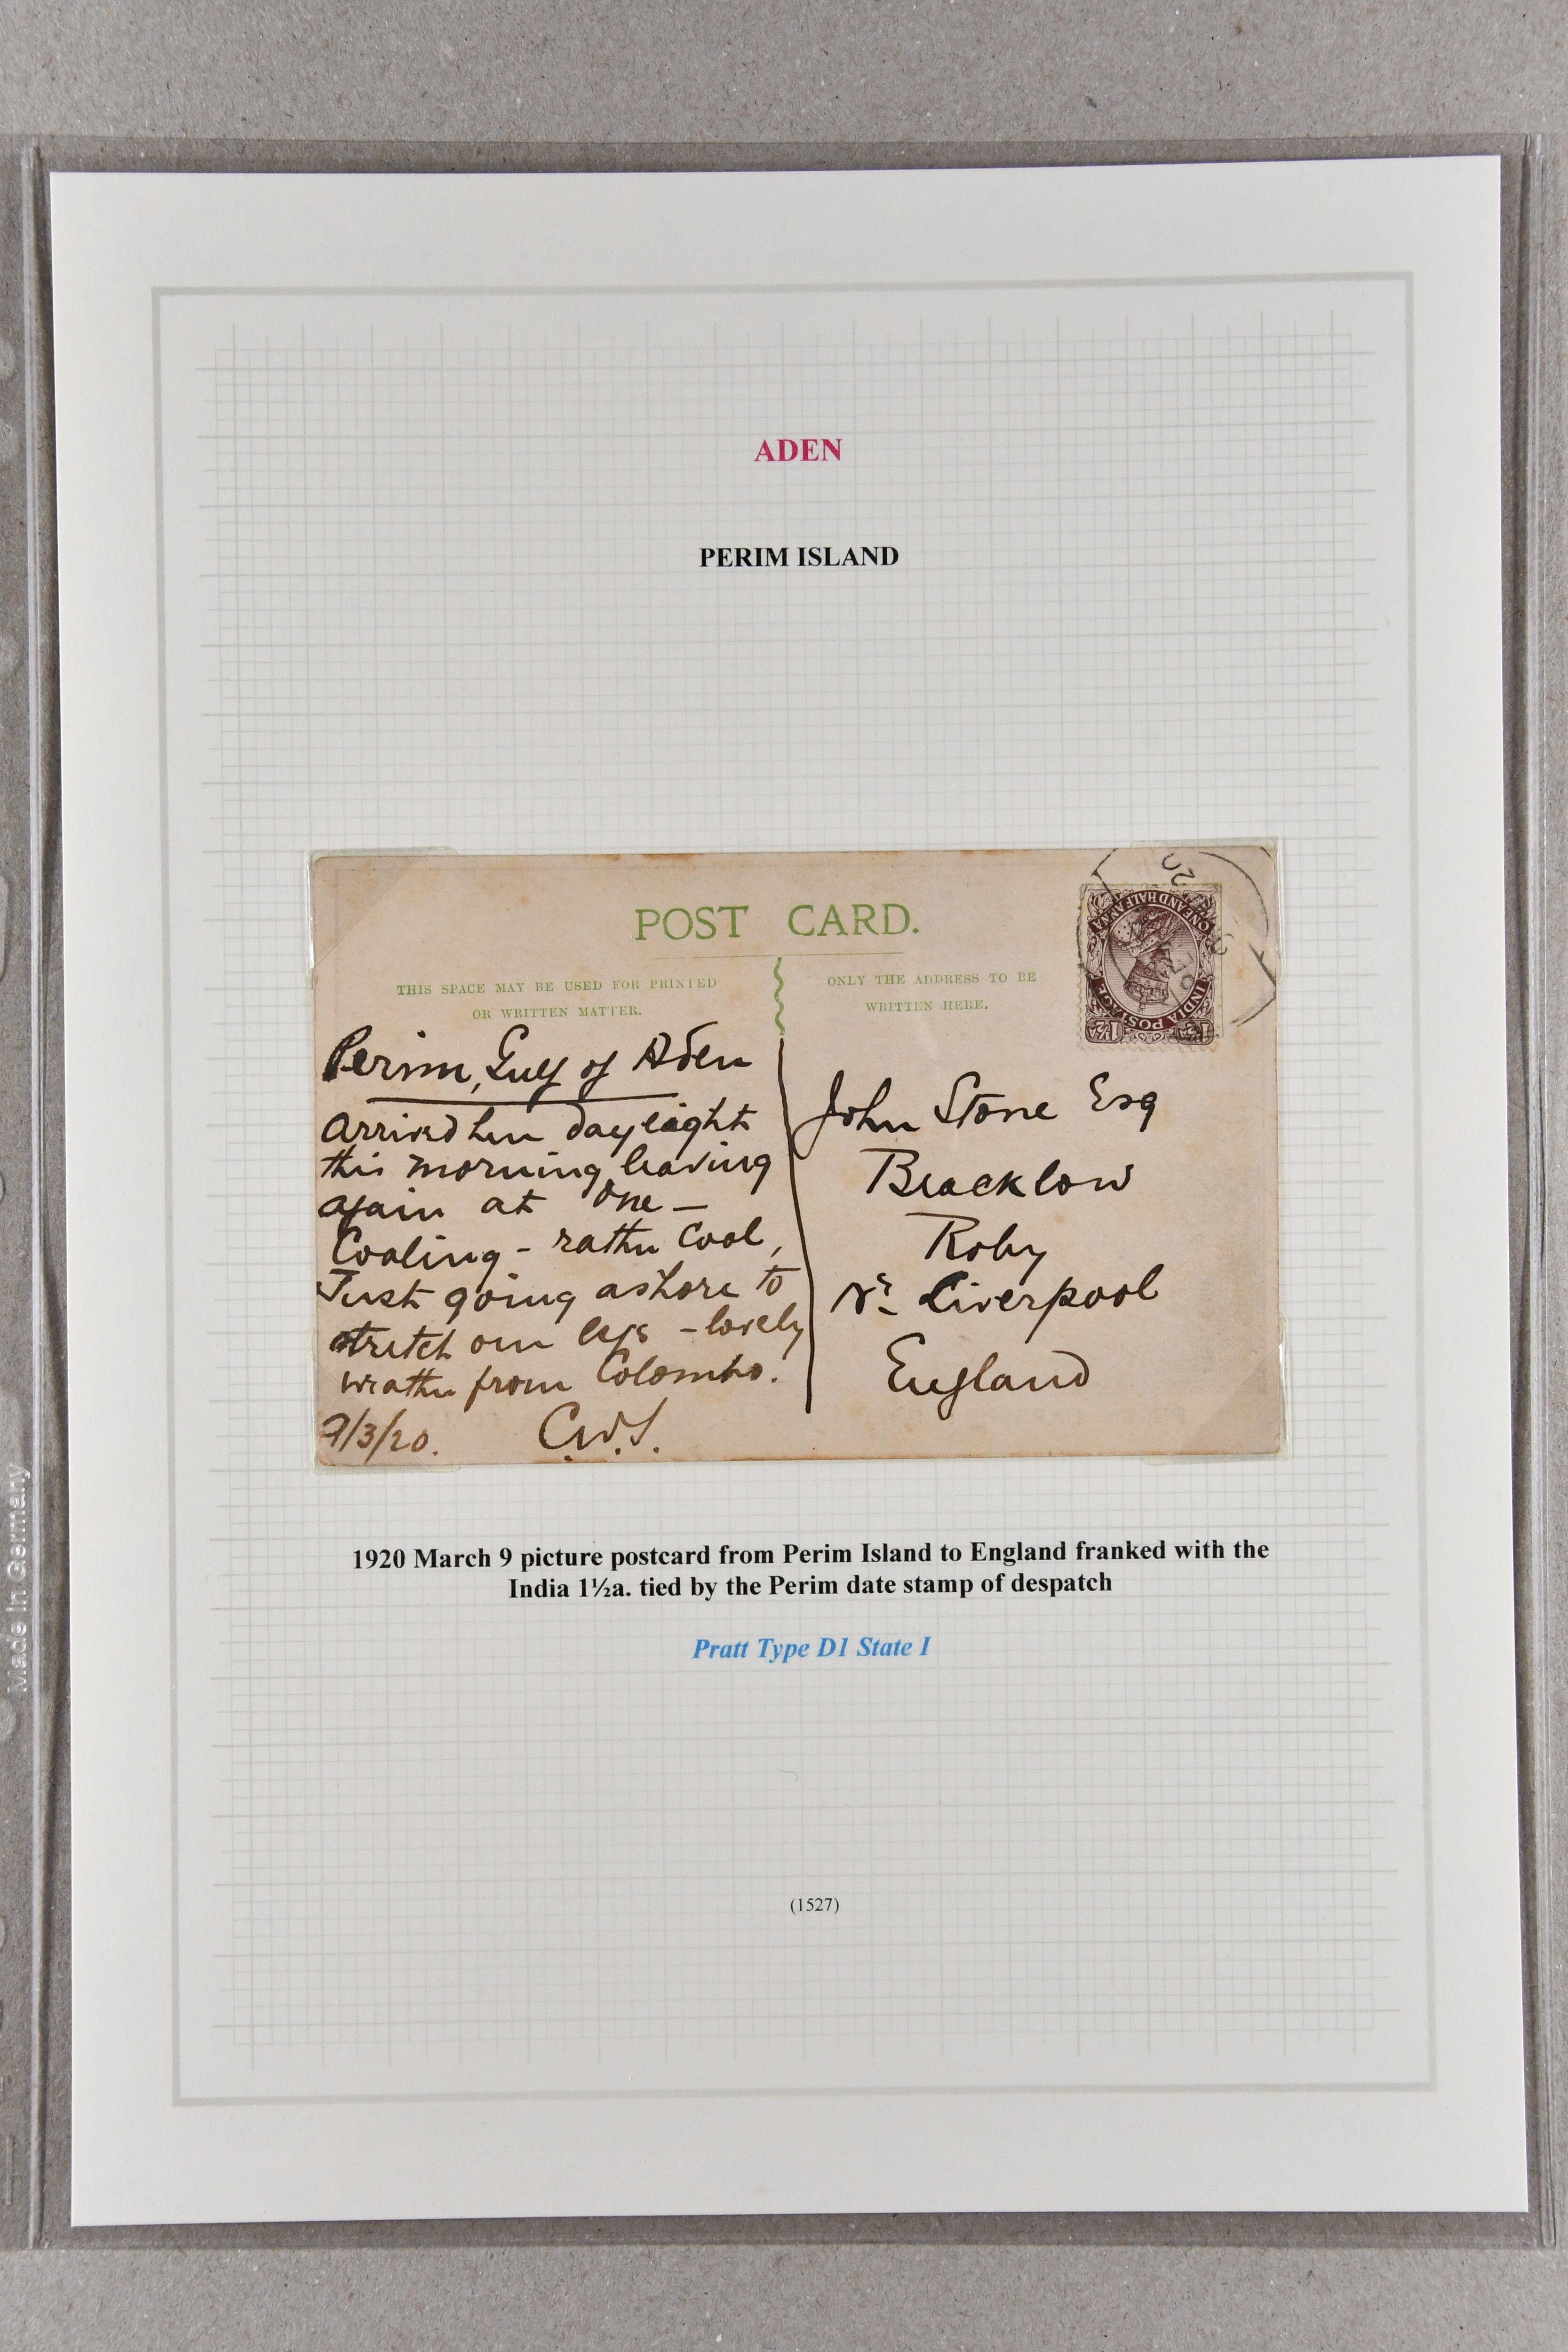 ADEN
PERIM ISLAND
POST CARD.
THIS SPACE MAY BE USED FOR PRINTED
OR WRITTEN MATTER.
ONLY THE ADDRESS TO BE
WRITTEN HERE.
INDIA POSTAGE
1½A 1½A
ONE AND HALF ANNA
20
Perim, Gulf of Aden
Arrived here daylight
this morning leaving
again at one –
Coaling – rather cool,
Just going ashore to
stretch our legs – lovely
weather from Colombo.
9/3/20. C.W.S.
John Stone Esq
Bracklow
Roby
Nr. Liverpool
England
1920 March 9 picture postcard from Perim Island to England franked with the
India 1½a. tied by the Perim date stamp of despatch
Pratt Type D1 State I
(1527)
Made in Germany